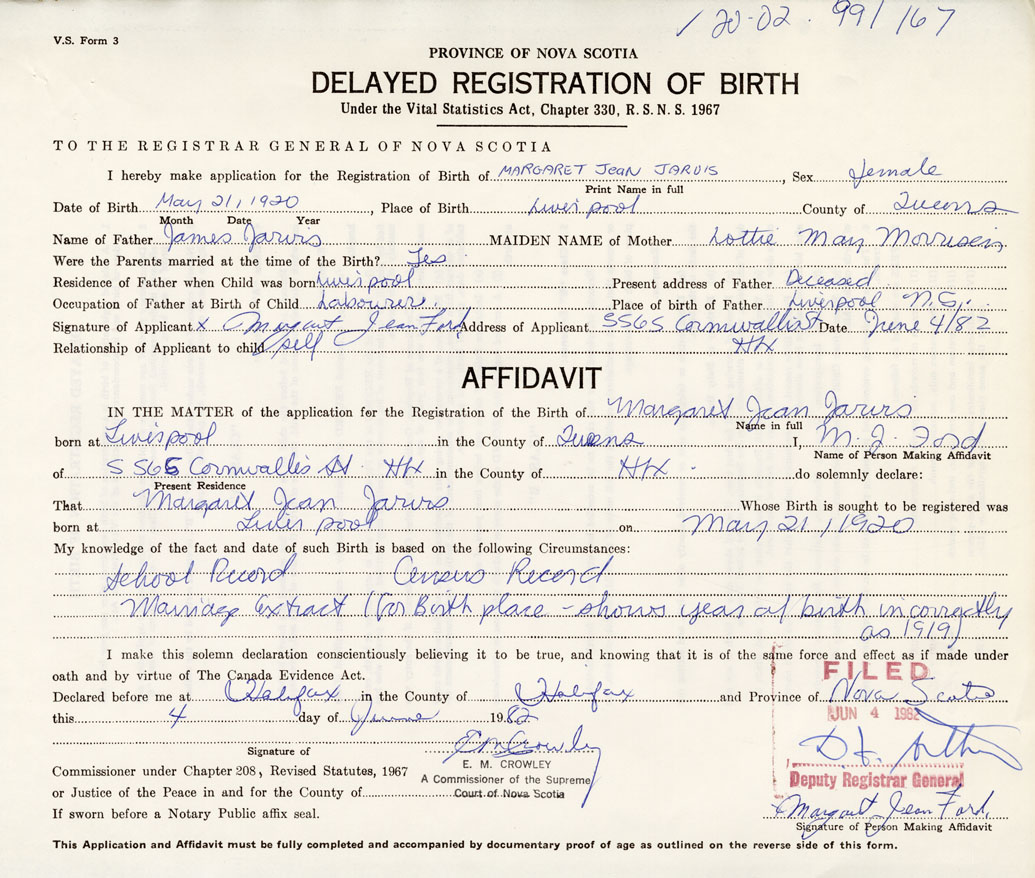 120-02. 991167
V.S. Form 3
PROVINCE OF NOVA SCOTIA
DELAYED REGISTRATION OF BIRTH
Under the Vital Statistics Act, Chapter 330, R.S.N.S. 1967
TO THE REGISTRAR GENERAL OF NOVA SCOTIA
I hereby make application for the Registration of Birth of MARGARET Jean JARVIS, Sex female
Print Name in full
Date of Birth May 21, 1920, Place of Birth Liverpool County of Queens
Month Date Year
Name of Father James Jarvis MAIDEN NAME of Mother Lottie May Morrisein
Were the Parents married at the time of the Birth? Yes
Residence of Father when Child was born Liverpool Present address of Father Deceased
Occupation of Father at Birth of Child Labourer. Place of birth of Father Liverpool N.S.
Signature of Applicant X Margaret Jean Ford Address of Applicant 5565 Cornwallis St Date June 4/82
Relationship of Applicant to child self Hfx
AFFIDAVIT
IN THE MATTER of the application for the Registration of the Birth of Margaret Jean Jarvis
Name in full
born at Liverpool in the County of Queens I, M. J. Ford
Name of Person Making Affidavit
of 5565 Cornwallis St. Hfx in the County of Hfx. do solemnly declare:
Present Residence
That Margaret Jean Jarvis Whose Birth is sought to be registered was
born at Liverpool on May 21, 1920
My knowledge of the fact and date of such Birth is based on the following Circumstances:
School Record Census Record
Marriage Extract (for Birth place - shows year of birth incorrectly
as 1919)
I make this solemn declaration conscientiously believing it to be true, and knowing that it is of the same force and effect as if made under
oath and by virtue of The Canada Evidence Act.
FILED
Declared before me at Halifax in the County of Halifax and Province of Nova Scotia
this 4 day of June 1982
JUN 4 1982
Signature of
E M Crowley
E. M. CROWLEY
Commissioner under Chapter 208, Revised Statutes, 1967
A Commissioner of the Supreme
Deputy Registrar General
or Justice of the Peace in and for the County of
Court of Nova Scotia
Margaret Jean Ford.
If sworn before a Notary Public affix seal.
Signature of Person Making Affidavit
This Application and Affidavit must be fully completed and accompanied by documentary proof of age as outlined on the reverse side of this form.